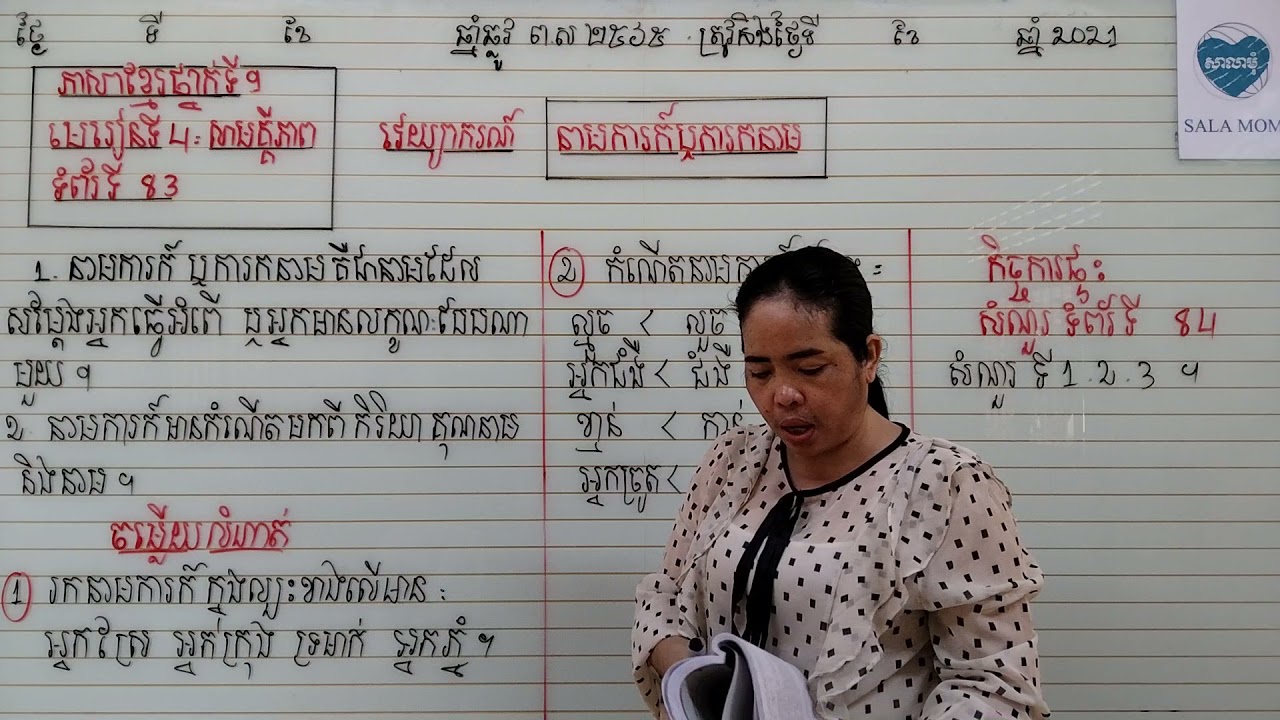 ថ្ងៃ ទី ខែ ឆ្នាំឆ្លូវ ព.ស ២៥៦៥ ត្រូវនឹងថ្ងៃទី ខែ ឆ្នាំ 2021
សាលាមុំ
SALA MOM
ភាសាខ្មែរថ្នាក់ទី ១
មេរៀនទី 4: សាមគ្គីភាព
ទំព័រទី 83
វេយ្យាករណ៍
នាមការក៍ឬការកនាម
1. នាមការក៍ ឬការកនាម គឺជានាមដែល
សម្ដែងអ្នកធ្វើអំពើ ឬអ្នកមានលក្ខណៈដែងណា
មួយ ។
2 នាមការក៍មានកំណើតមកពី កិរិយា គុណនាម
និងនាម ។
ចម្លើយលំហាត់
1 រកនាមការក៍ ក្នុងល្បះខាងលើមាន :
អ្នកស្រែ អ្នកក្រុង ទ្រមាក់ អ្នកភ្នំ ។
2 កំណើតនាម :
ល្មួច < លួច
អ្នកជំងឺ < ជំងឺ
ខ្មាន់ < កាន់
អ្នកច្រូត <
កិច្ចការផ្ទះ
សំណួរ ទំព័រទី 84
សំណួរ ទី 1.2.3 ។